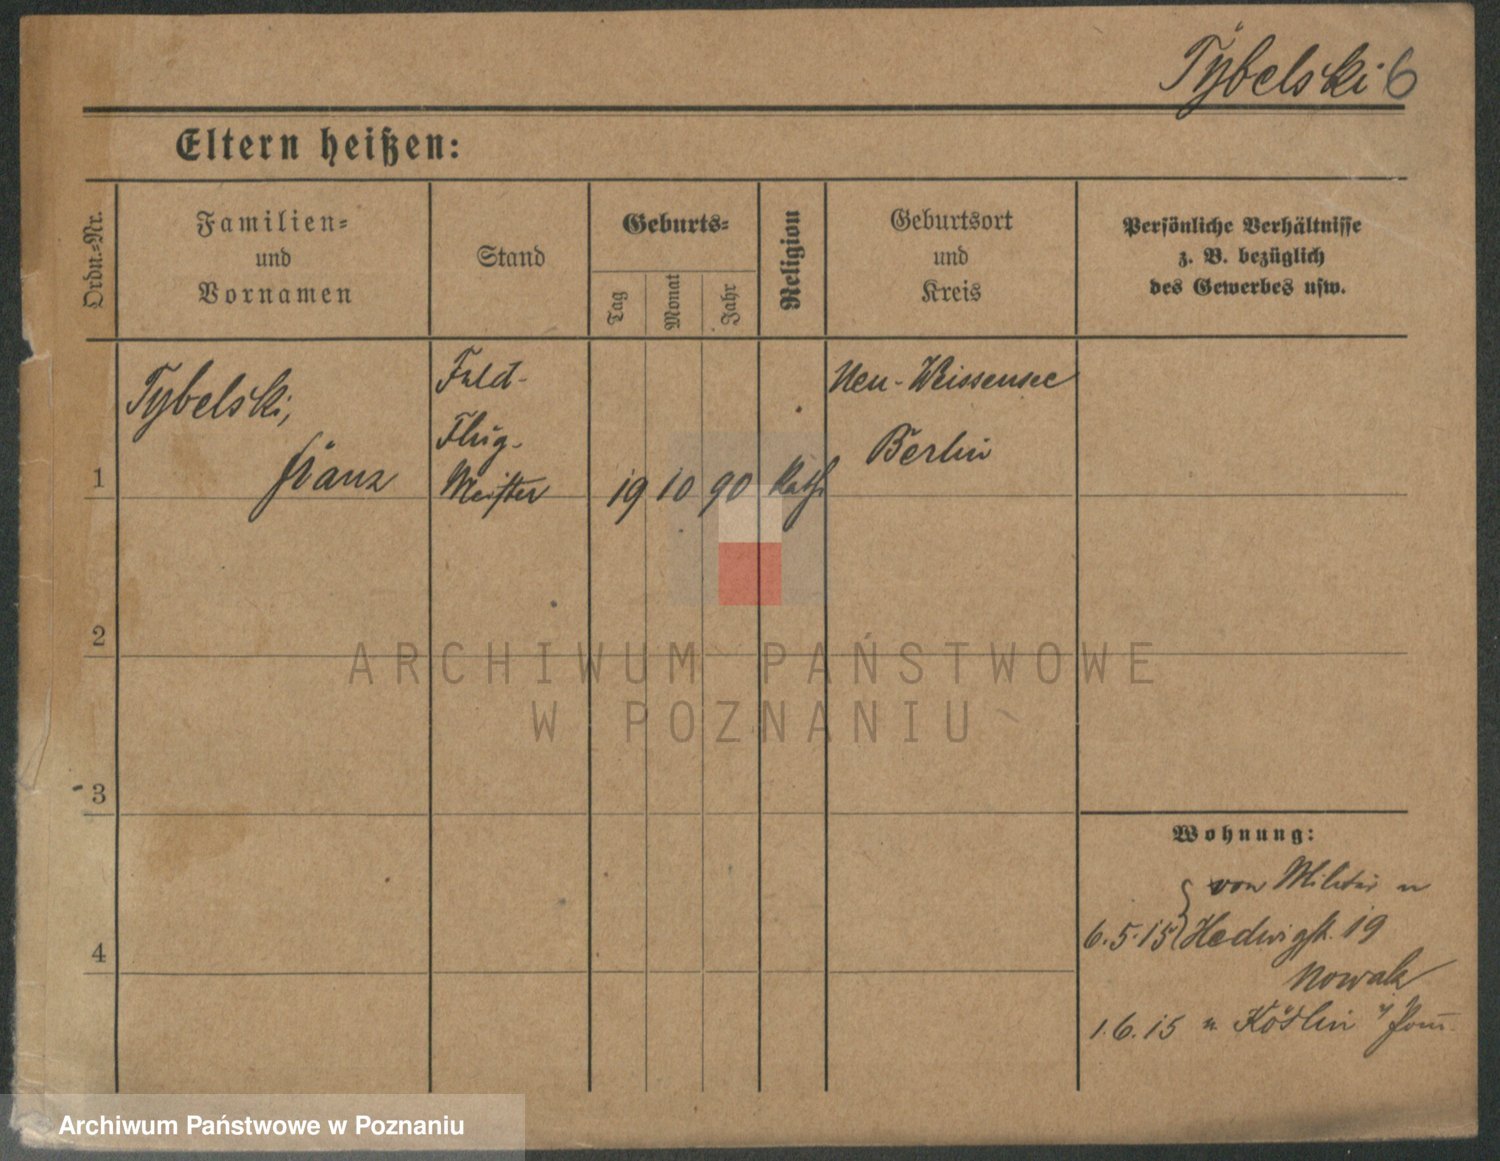 Tybelski 6
Eltern heißen:
Ordn.-Nr.
Familien-
und
Vornamen
Stand
Geburts-
Tag
Monat
Jahr
Religion
Geburtsort
und
Kreis
Persönliche Verhältnisse
z. B. bezüglich
des Gewerbes usw.
1
Tybelski,
Franz
Feld-
Flug-
Meister
19
10
90
Kath
Neu-Weissensee
Berlin
2
3
4
Wohnung:
von Militär n
6.5.15 Hedwigstr. 19
Nowak
1.6.15 n Köslin i/ Pom
ARCHIWUM PAŃSTWOWE
W POZNANIU
Archiwum Państwowe w Poznaniu